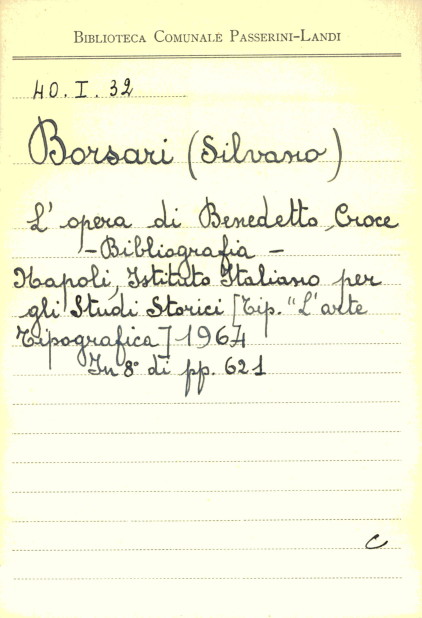 BIBLIOTECA COMUNALE PASSERINI-LANDI
40. I. 32
Borsari (Silvano)
L'opera di Benedetto Croce
- Bibliografia -
Napoli, Istituto Italiano per
gli Studi Storici [Tip. "L'arte
Tipografica] 1964
In 8° di pp. 621
C